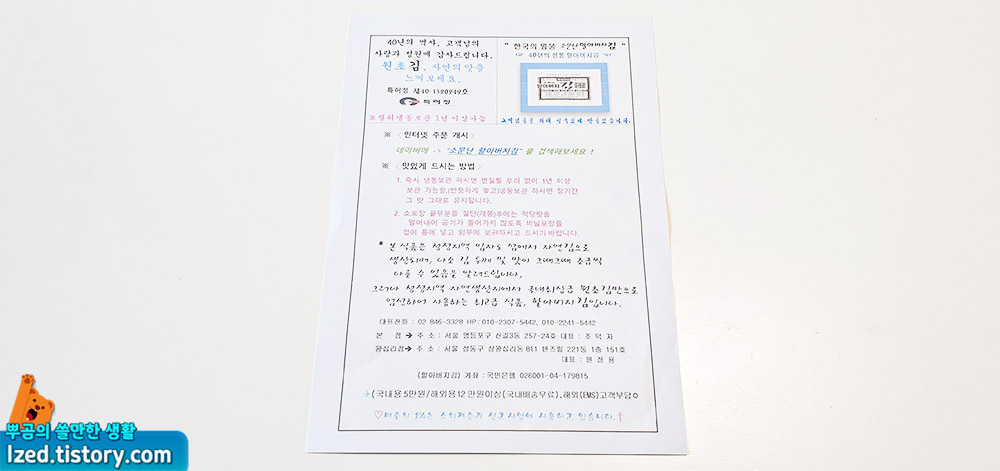 40년의 역사, 고객님의
사랑과 성원에 감사드립니다.
원초 김, 자연의 맛을
느껴보세요.
특허청 제40-1320249호
특허청
※ 장기냉동보관 1년 이상가능
" 한국의 명물 소문난할아버지김 "
40년의 전통 할아버지김
할아버지 김
고객님을 위해 정성껏 만들었습니다.
※ <인터넷 주문 개시>
네이버에 -> "소문난 할아버지김" 을 검색해보세요 !
※ <맛있게 드시는 방법>
1. 즉시 냉동보관 하시면 변질될 우려 없이 1년 이상
보관 가능함,(반듯하게 놓고)냉동보관 하시면 장기간
그 맛 그대로 유지됩니다.
2. 소포장 끝부분을 절단(개봉)후에는 적당량을
덜어내어 공기가 들어가지 않도록 비닐포장을
접어 통에 넣고 외부에 보관하시고 드시기 바랍니다.
* 본 식품은 청정지역 임자도 섬에서 자연김으로
생산되며, 다소 김 두께 및 맛이 그때그때 조금씩
다를 수 있음을 알려드립니다.
그러나 청정지역 자연생산지에서 국내최상급 원초김만으로
엄선하여 사용하는 최고급 식품, 할아버지김입니다.
대표전화 : 02 846-3328 HP: 010-2307-5442, 010-2241-5442
본 점 → 주 소 : 서울 영등포구 신길3동 257-24호 대표 : 조 덕 자
왕십리점 → 주 소 : 서울 성동구 상왕십리동 811 텐즈힐 221동 1층 151호
대표 : 원 정 용
(할아버지김) 계좌 : 국민은행 028001-04-179815
(국내용 5만원/해외용12 만원이상(국내배송무료),해외(EMS)고객부담
♡매출의 1%은 소외계층과 선교사업에 사용하고 있습니다.†
뿌곰의 쓸만한 생활
lzed.tistory.com